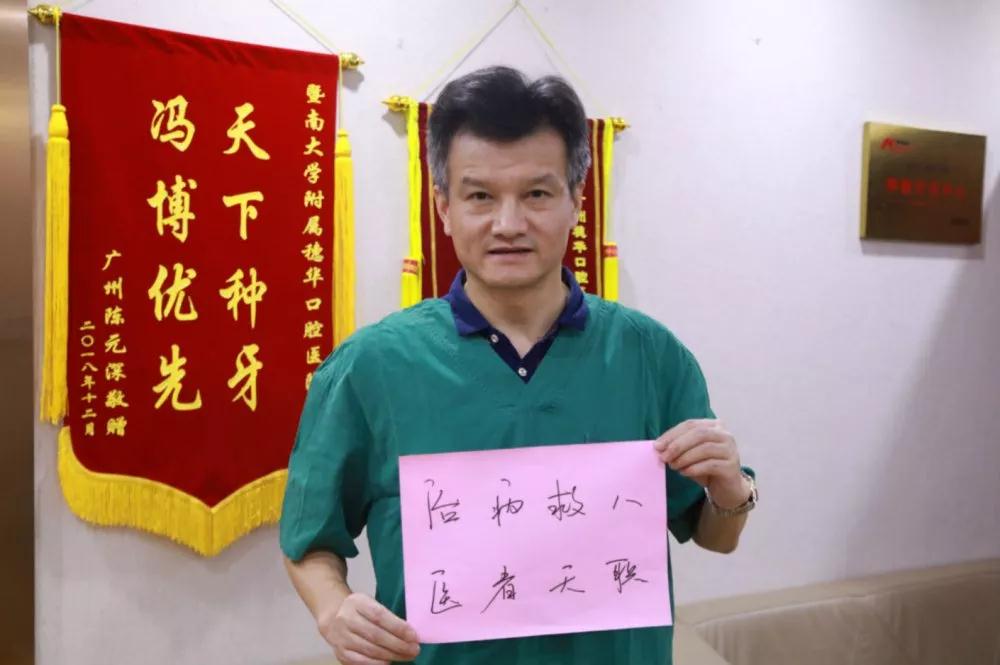 暨南大学附属穗华口腔医
天下种牙
冯博优先
广州陈元深敬赠
二〇一八年十二月
州穗华口腔
治病救人
医者天职